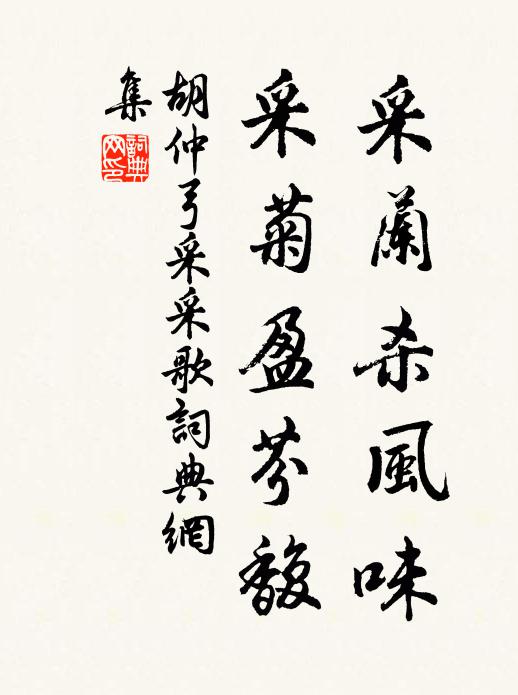 采蘭杀風味
采菊盈芬馥
胡仲弓采采歌詞典網
集
詞典
网印